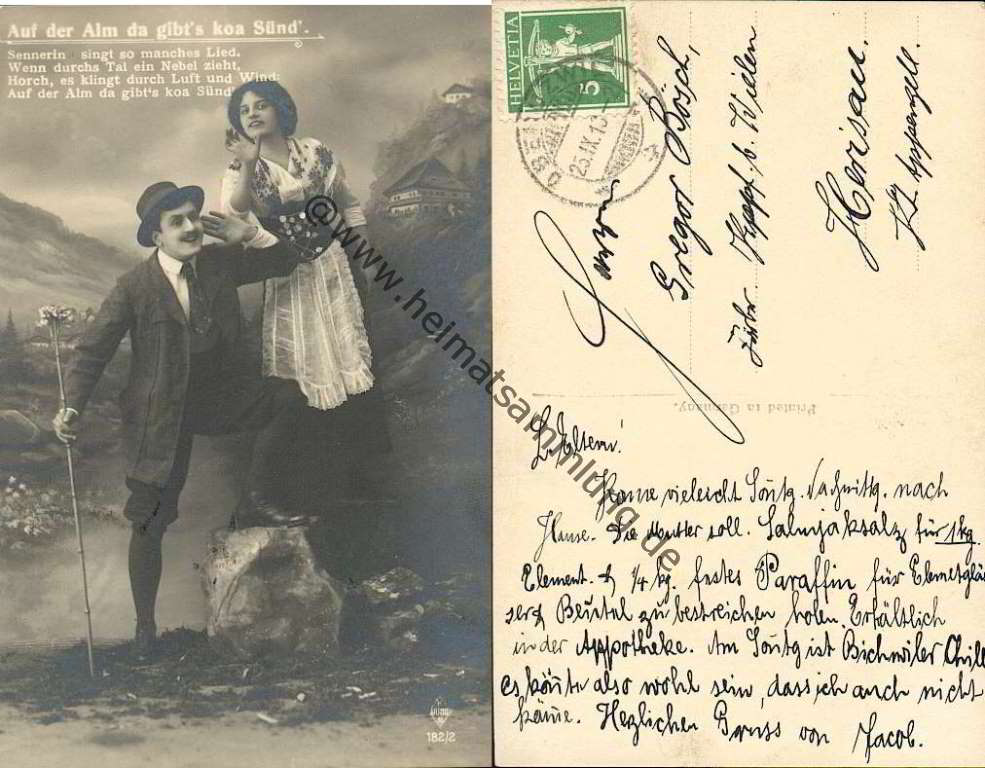 Auf der Alm da gibt's koa Sünd'.
Sennerin singt so manches Lied.
Wenn durchs Tal ein Nebel zieht,
Horch, es klingt durch Luft und Wind:
Auf der Alm da gibt's koa Sünd'
182/2
@www.heimatsammlung.de
HELVETIA
5
23.IX.13
Gregor Bösch,
Herisau.
Kt. Appenzell.
Printed in Germany.
L. Eltern!
Kome vieleicht Sontg. Nachmittg. nach
Hause. Die Mutter soll. Salmjaksalz für 1 kg.
Element. & 1/4 kg. festes Paraffin für Elemetglä
ser & Beutel zu bestreichen holen. Erhältlich
in der Appotheke. Am Sontg ist Bichwiler Chilb
es könte also wohl sein, dass ich auch nicht
käme. Hezlichen Gruss von Jacob.